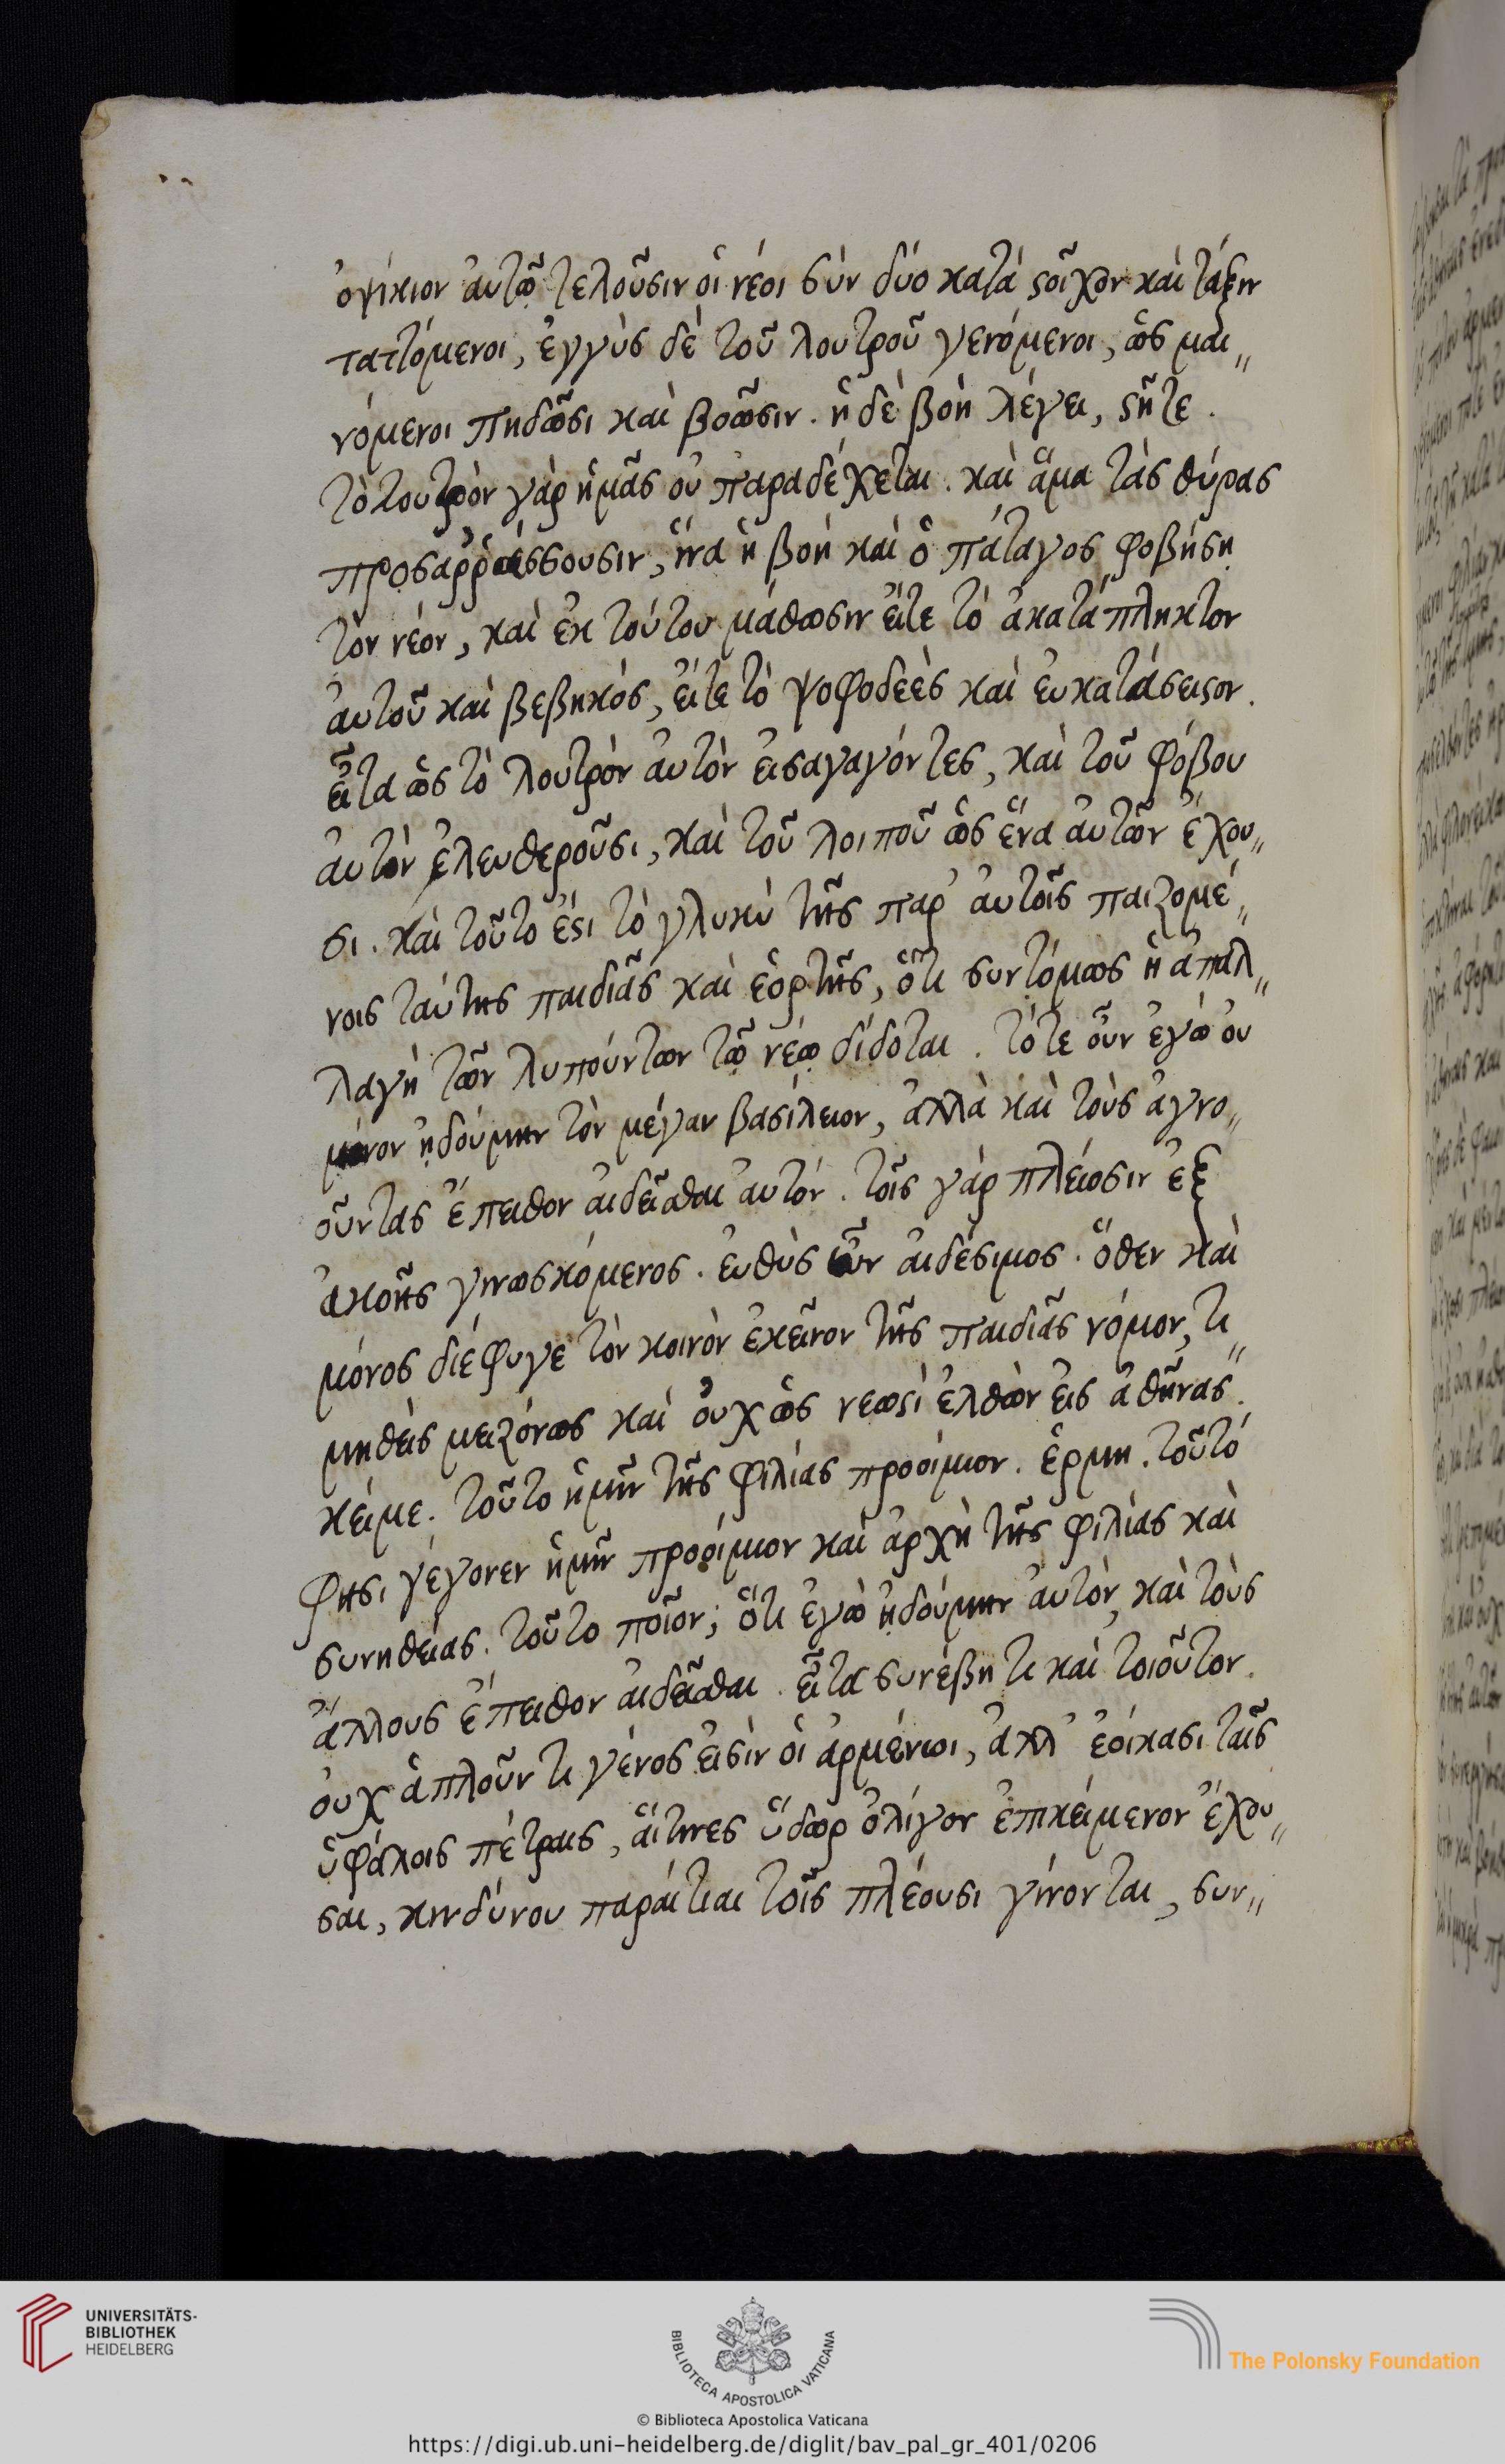 ὀψίκιον ἀυτῷ τελοῦσιν ὁι νέοι σὺν δύο κατὰ ϛοῖχον καὶ τάξιν
ταττόμενοι, ἐγγὺς δὲ τοῦ λουτροῦ γενόμενοι, ὡς μαι„
νόμενοι πηδῶσι καὶ βοῶσιν. ἡ δὲ βοὴ λέγει, ϛῆτε.
τὸ λουτρὸν γὰρ ἡμᾶς οὐ παραδέχεται. καὶ ἅμα τὰς θύρας
προσαῤῥάσσουσιν, ἵνα ἡ βοὴ καὶ ὁ πάταγος φοβήσῃ
τὸν νέον, καὶ ἐκ τούτου μάθωσιν ἔιτε τὸ ἀκατάπληκτον
ἀυτοῦ καὶ βεβηκὸς, ἔιτε τὸ ψοφοδεὲς καὶ ἐυκατάσειϛον.
εἶτα ὡς τὸ λουτρὸν ἀυτὸν ἐισαγαγόντες, καὶ τοῦ φόβου
ἀυτὸν ἐλευθεροῦσι, καὶ τοῦ λοιποῦ ὡς ἕνα ἀυτῶν ἔχου„
σι. καὶ τοῦτο ἔϛι τὸ γλυκὺ τῆς παρ' ἀυτοῖς παιζομέ„
νοις ταύτης παιδιᾶς καὶ ἑορτῆς, ὅτι συντόμως ἡ ἀπαλ„
λαγὴ τῶν λυπούντων τῷ νέῳ δίδοται. τότε οὖν ἐγὼ ὀυ
μόνον ᾐδούμην τὸν μέγαν βασίλειον, ἀλλὰ καὶ τοὺς ἀγνο„
οῦντας ἔπειθον ἀιδεῖσθαι ἀυτόν. τοῖς γὰρ πλείοσιν ἐξ
ἀκοῆς γινωσκόμενος. ἐυθὺς οὖν ἀιδέσιμος. ὅθεν καὶ
μόνος διέφυγε τὸν κοινὸν ἐκεῖνον τῆς παιδιᾶς νόμον, τι„
μηθεὶς μειζόνως καὶ ὀυχ ὡς νεωϛὶ ἐλθὼν ἐις ἀθῆνας.
κέιμε. τοῦτο ἡμῖν τῆς φιλίας προοίμιον. ἑρμη. τοῦτό
φησι γέγονεν ἡμῖν προοίμιον καὶ ἀρχὴ τῆς φιλίας καὶ
συνηθείας. τοῦτο ποῖον; ὅτι ἐγὼ ᾐδούμην ἀυτὸν, καὶ τοὺς
ἄλλους ἔπειθον ἀιδεῖσθαι. εἶτα συνέβη τι καὶ τοιοῦτον.
ὀυχ ἁπλοῦν τι γένος ἐισὶν ὁι ἀρμένιοι, ἀλλ' ἐοίκασι ταῖς
ὑφάλοις πέτραις, ἅιτινες ὕδωρ ὀλίγον ἐπικείμενον ἔχου„
σαι, κινδύνου παράιτιαι τοῖς πλέουσι γίνονται, συν„
UNIVERSITÄTS-
BIBLIOTHEK
HEIDELBERG
BIBLIOTECA APOSTOLICA VATICANA
The Polonsky Foundation
© Biblioteca Apostolica Vaticana
https://digi.ub.uni-heidelberg.de/diglit/bav_pal_gr_401/0206